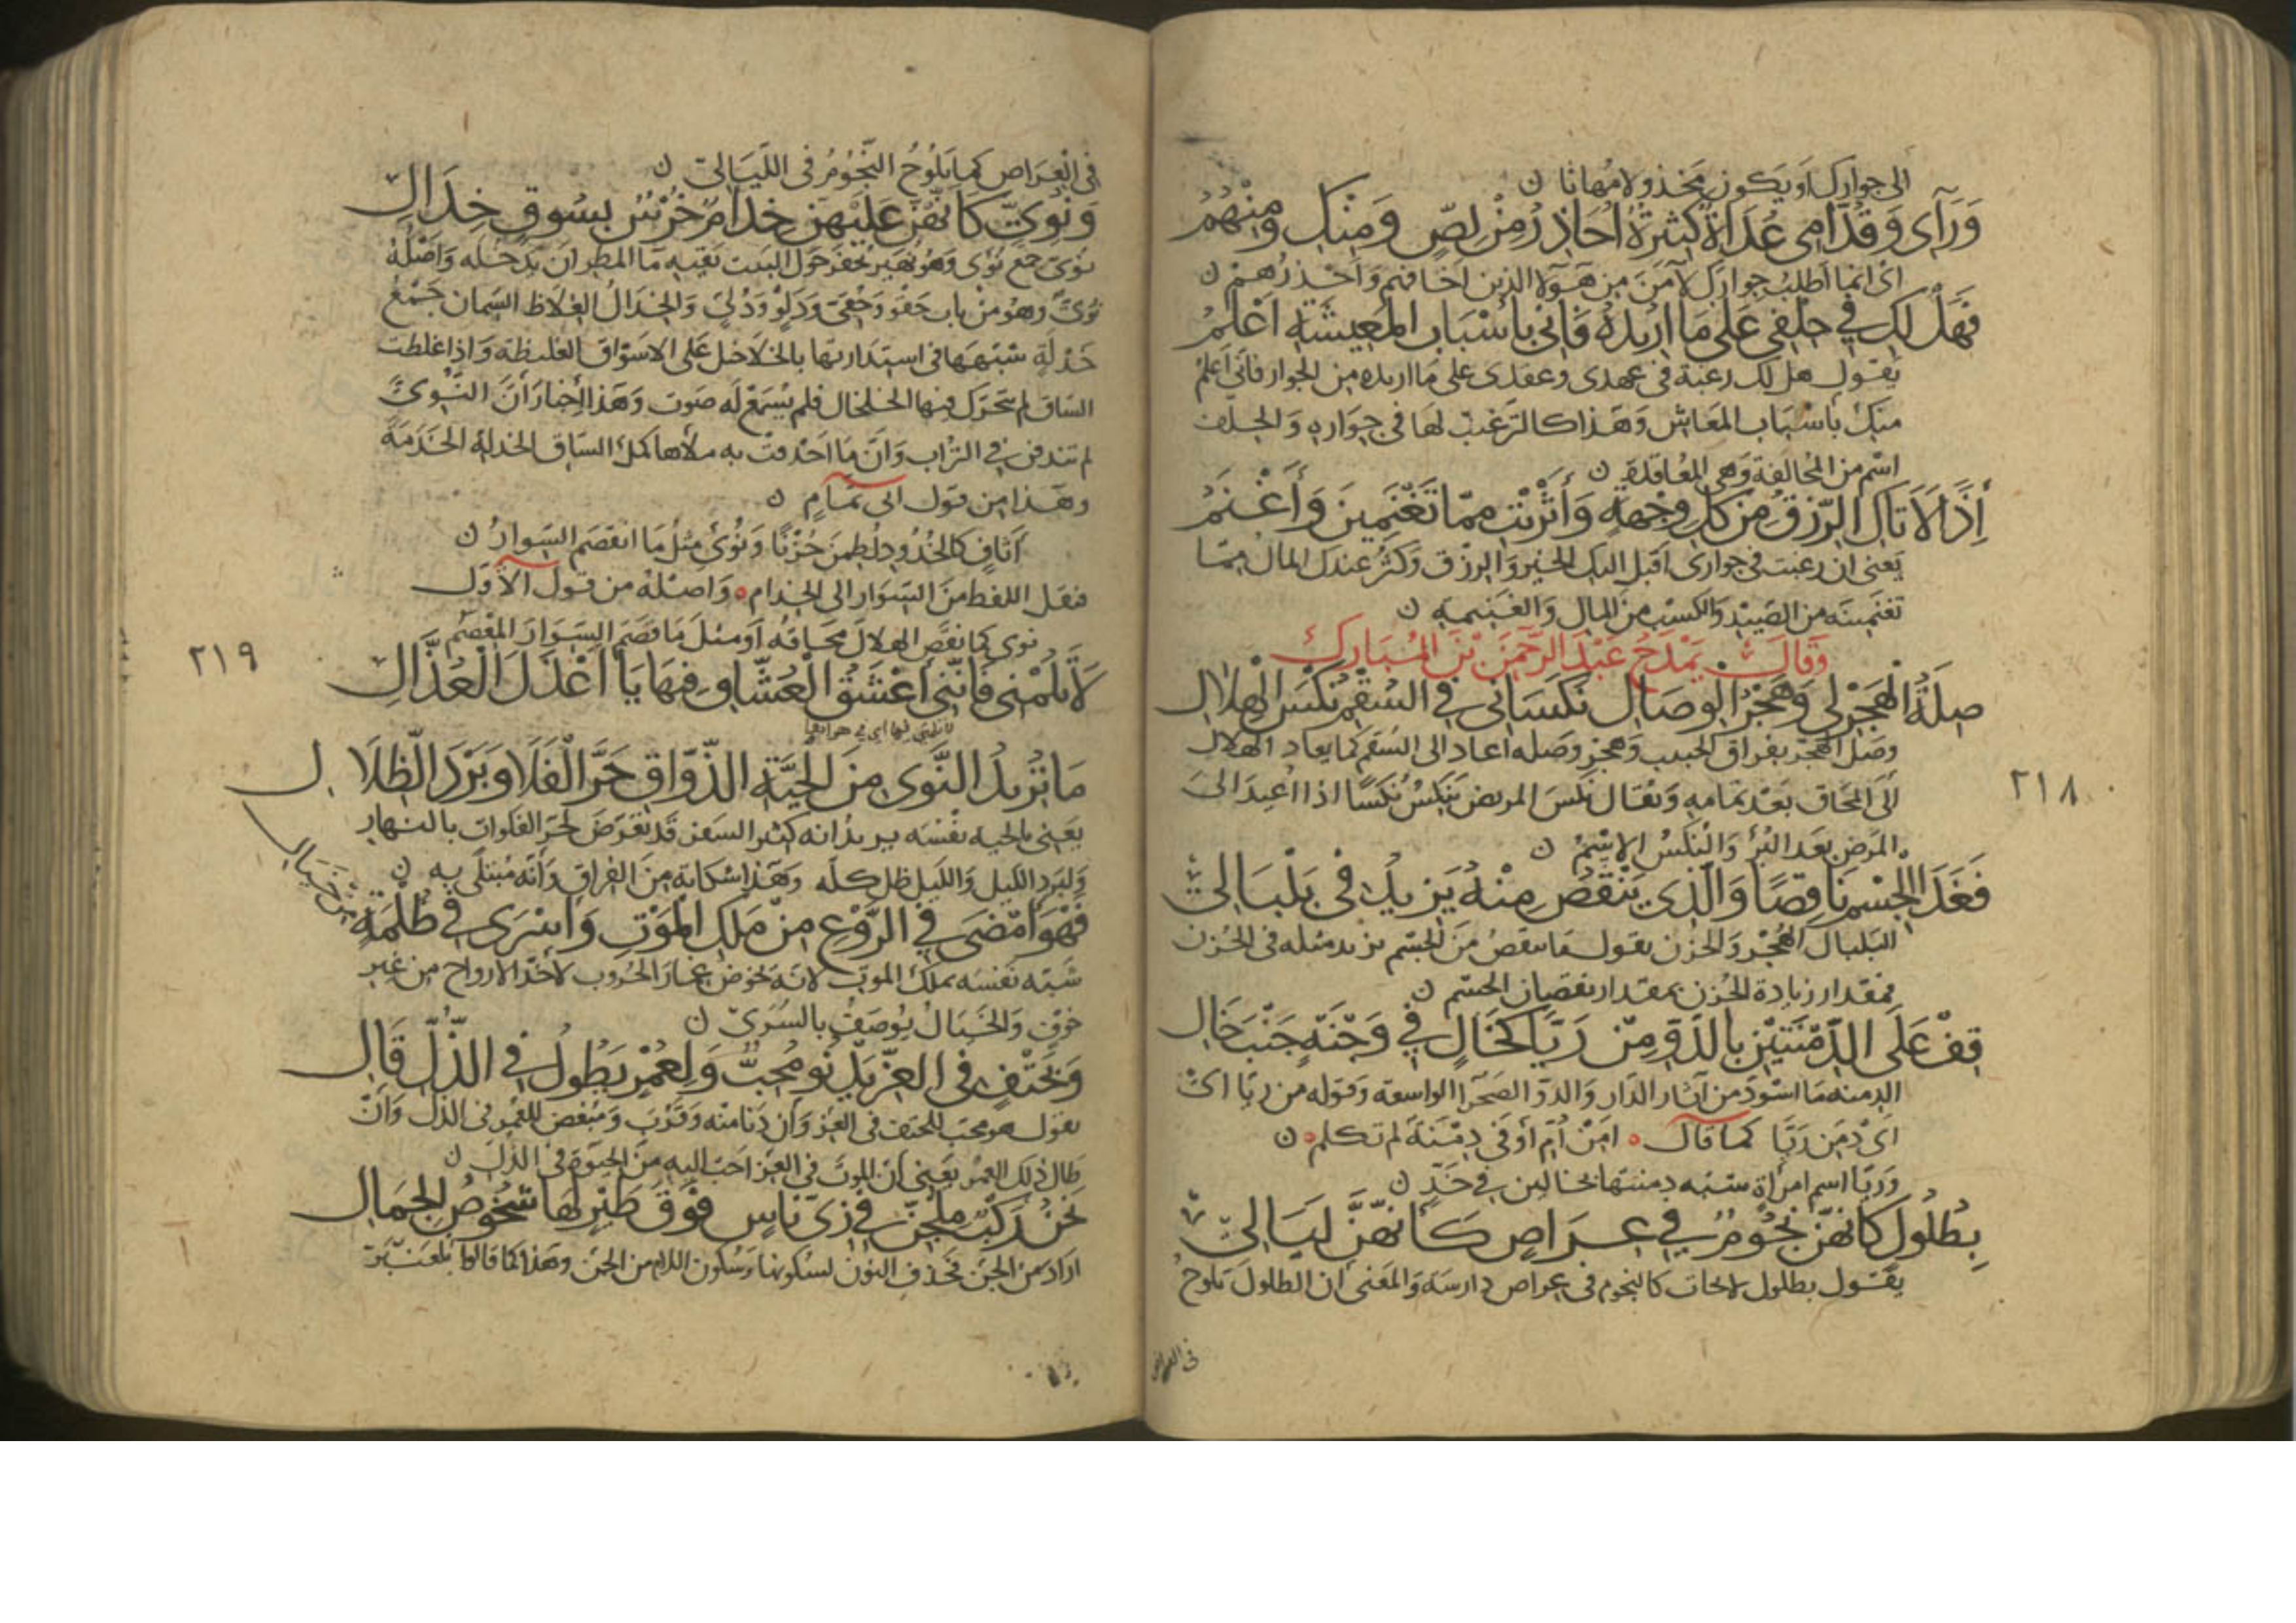 الى جوارك او يكون مخذولا مهانا ن
وَرَآى وَقُدَّامى عُدَاةٌ كَثيرَةٌ اُحَاذِرُ مِنْ لِصٍّ وَمِنْكِ وَمِنْهُمُ
اى انما اطلب جوارك لآمن من هؤلا الذين اخافهم واحذرهم ن
فَهَلْ لَكِ في حِلْفى عَلى مَا اُرِيْدُهُ فَانى باَسْبَابِ المَعِيشَةِ اَعْلَمُ
يقول هل لك رغبة فى عهدى وعقدى على ما اريده من الجوار فانى اعلم
منك باسباب المعاش وهذا كالترغيب لها فى جواره والحلف
اسم من المحالفة وهى المعاقدة ن
إِذًا لَاَتَاكِ الرّزقُ مِنْ كلِّ وِجْهةٍ وَأَثْرَيْتِ مِمّا تَغْنَمِينَ وَأَغْنَمُ
يعنى ان رغبت فى جوارى اقبل اليك الخير والرزق وكثر عندك المال مما
تغنمينه من الصيد والكسب من المال والغنيمة ن
وَقَالَ يَمْدَحُ عَبْدَ الرَّحْمٰنِ بْنَ المُبَارك
صِلَةُ الهَجْرِ لي وَهَجْرُ الوِصَالِ نَكَسَانى فى السُّقْمِ نُكْسَ الهِلَالِ
وصل الهجر بفراق الحبيب وهجر وصله اعاد الى السقم كما يعاد الهلال
الى المحاق بعد تمامه ويقال نكس المريض ينكس نكسا اذا اعيد الى
المرض بعد البرء والنكس الاسم ن
فَغَدَا الجِسْمُ نَاقِصًا وَالَّذِى يَنْقُصُ مِنْهُ يَزِيدُ فى بَلْبَالى
البلبال الهجر والحزن يقول ما ينقص من الجسم يزيد مثله فى الحزن
فمقدار زيادة الحزن بمقدار نقصان الجسم ن
قِفْ عَلَى الدِّمْنَتَيْنِ بالدَّوِّ مِنْ رَيَّا كَخَالٍ فِي وَجْنَةٍ جَنْبَ خَالِ
الدمنة ما اسود من آثار الدار والدو الصحرا الواسعة وقوله من ريا اى
اى دمن ريا كما قال ٥ امن ام اوفى دمنة لم تكلم ٥ ن
وريا اسم امراة شبه دمنتها بخالين فى خد ن
بِطُلُولٍ كَانهّنَّ نُجُومٌ في عِرَاصٍ كَأَنهّنَّ لَيَالى
يقول بطلول لاحات كالنجوم فى عراص دارسة والمعنى ان الطلول تلوح
فى العراص
٢١٨
فى العراص كما تلوح النجوم فى الليالى ن
وَنُؤِيٍّ كَاَنهُّنَّ عَلَيْهِنَّ خِدَامٌ خُرْسٌ بِسُوقٍ خِدَالِ
نؤى جمع نؤى وهو نهير يحفر حول البيت يقيه ما المطر ان يدخله واصله
نؤى وهو من باب حقو وحقى ودلو ودلى والخدال الغلاظ السمان جمع
خدلة شبهها فى استدارتها بالخلاخل على الاسواق الغليظة واذا غلظت
الساق لم يتحرك فيها الخلخال فلم يسمع له صوت وهذا اخبار ان النؤى
لم تندفن فى التراب وان ما احدقت به ملأها كملء الساق الخدلة الخدمة
وهذا من قول ابى تمام ن
أثافٍ كالخدود لطمن حزنا ونؤى مثل ما انفصم السوار ن
فنقل اللفظ من السوار الى الخدام ٥ واصله من قول الاول
نوى كما نقص الهلال محاقه او مثل ما فصم السوار المعصم
لَا تَلُمْنى فَانّنى اَعْشَقُ الْعُشَّاقِ فِيهَا يَا اَعْذَلَ الْعُذَّالِ
مَا تُرِيدُ النَّوَى مِنَ الحَيَّةِ الذّوَّاقِ حَرَّ الْفَلَا وَبَرْدَ الظِّلَالِ
يعنى بالحية نفسه يريد انه كثير السفر قد تعرض لحر الفلوات بالنهار
ولبرد الليل والليل ظل كله وهذا شكاية من الفراق وانه مبتلى به ن
فَهْوَ اَمْضَى فِي الرَّوْعِ مِنْ مَلَكِ المَوْتِ وَاَسْرَى فِي ظُلْمَةٍ مِنْ خَيَالِ
شبه نفسه بملك الموت لانه يخوض غمار الحروب لاخذ الارواح من غير
خوف والخيال يوصف بالسرى ن
وَلِحَتْفٍ فى العِزّ يَدْنُو مُحِبٌّ وَلِعُمْرٍ يَطُولُ فِي الذُّلِّ قَالِ
يقول هو محب للحتف فى العز وان دنا منه وقرب ومبغض للعمر فى الذل وان
طال ذلك العمر يعنى ان الموت فى العز احب اليه من الحيوة فى الذل ن
نَحْنُ رَكْبٌ مِلْجِنِّ فِي زِيِّ نَاسٍ فَوْقَ طَيْرٍ لَهَا شُخُوصُ الجِمَالِ
اراد من الجن فحذف النون لسكونها وسكون اللام من الجن وهذا كما قالوا بلعنبر
٢١٩